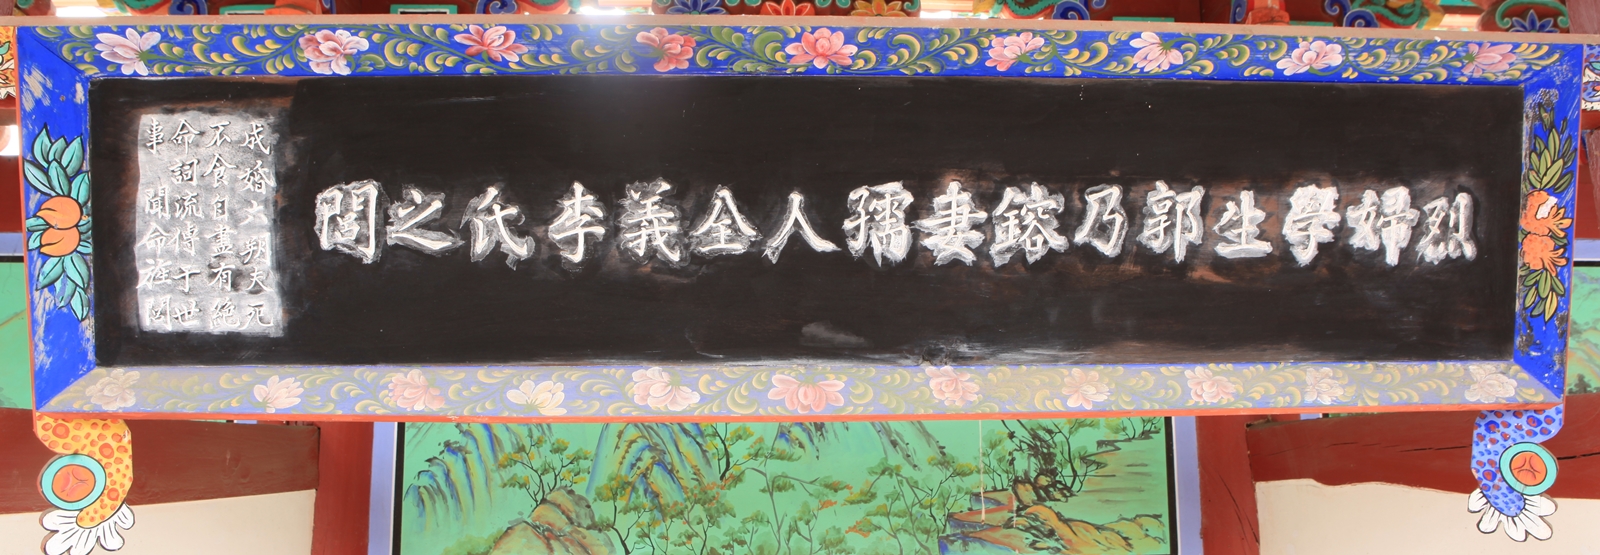 烈婦學生郭乃鎔妻孺人全義李氏之閭
成婚六朔夫死
不食自盡有絶
命詞流傳于世
事聞命旌閭